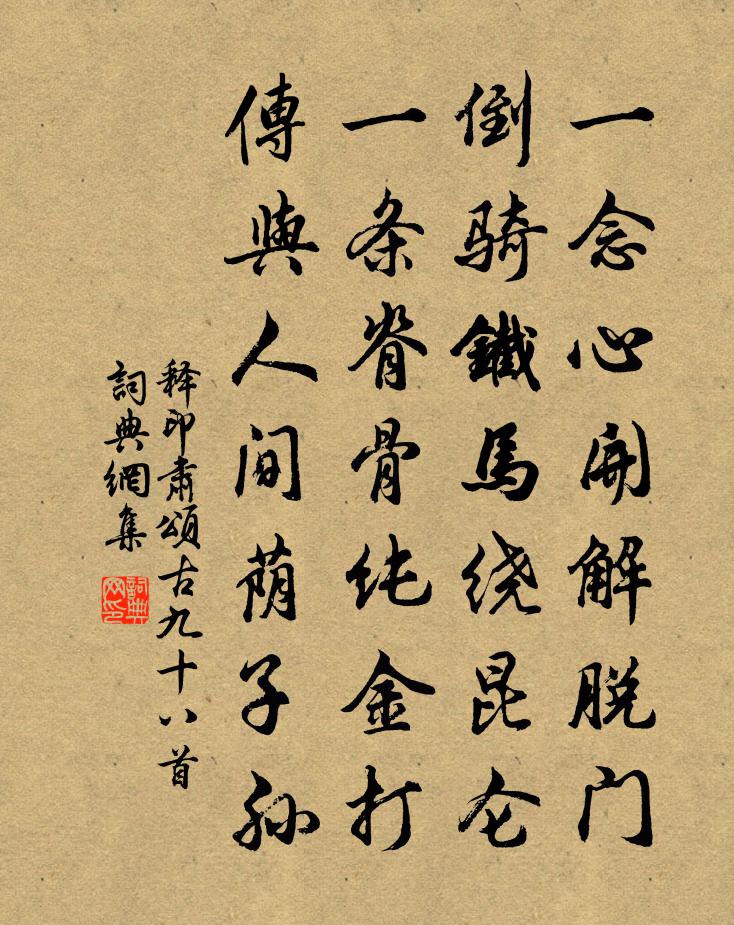 一念心開解脱门
倒骑鐵馬绕昆仑
一条脊骨纯金打
傳與人间荫子孙
释印肃頌古九十八首
詞典網集
詞典網印